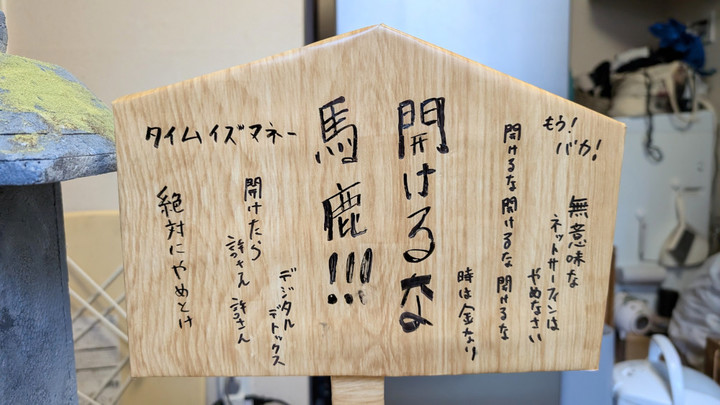 もう!
バカ!
無意味な
ネットサーフィンは
やめなさい
開けるな開けるな開けるな
時は金なり
開けるな
馬鹿!!!
タイムイズマネー
デジタル
デトックス
開けたら
許さん 許さん
絶対にやめとけ